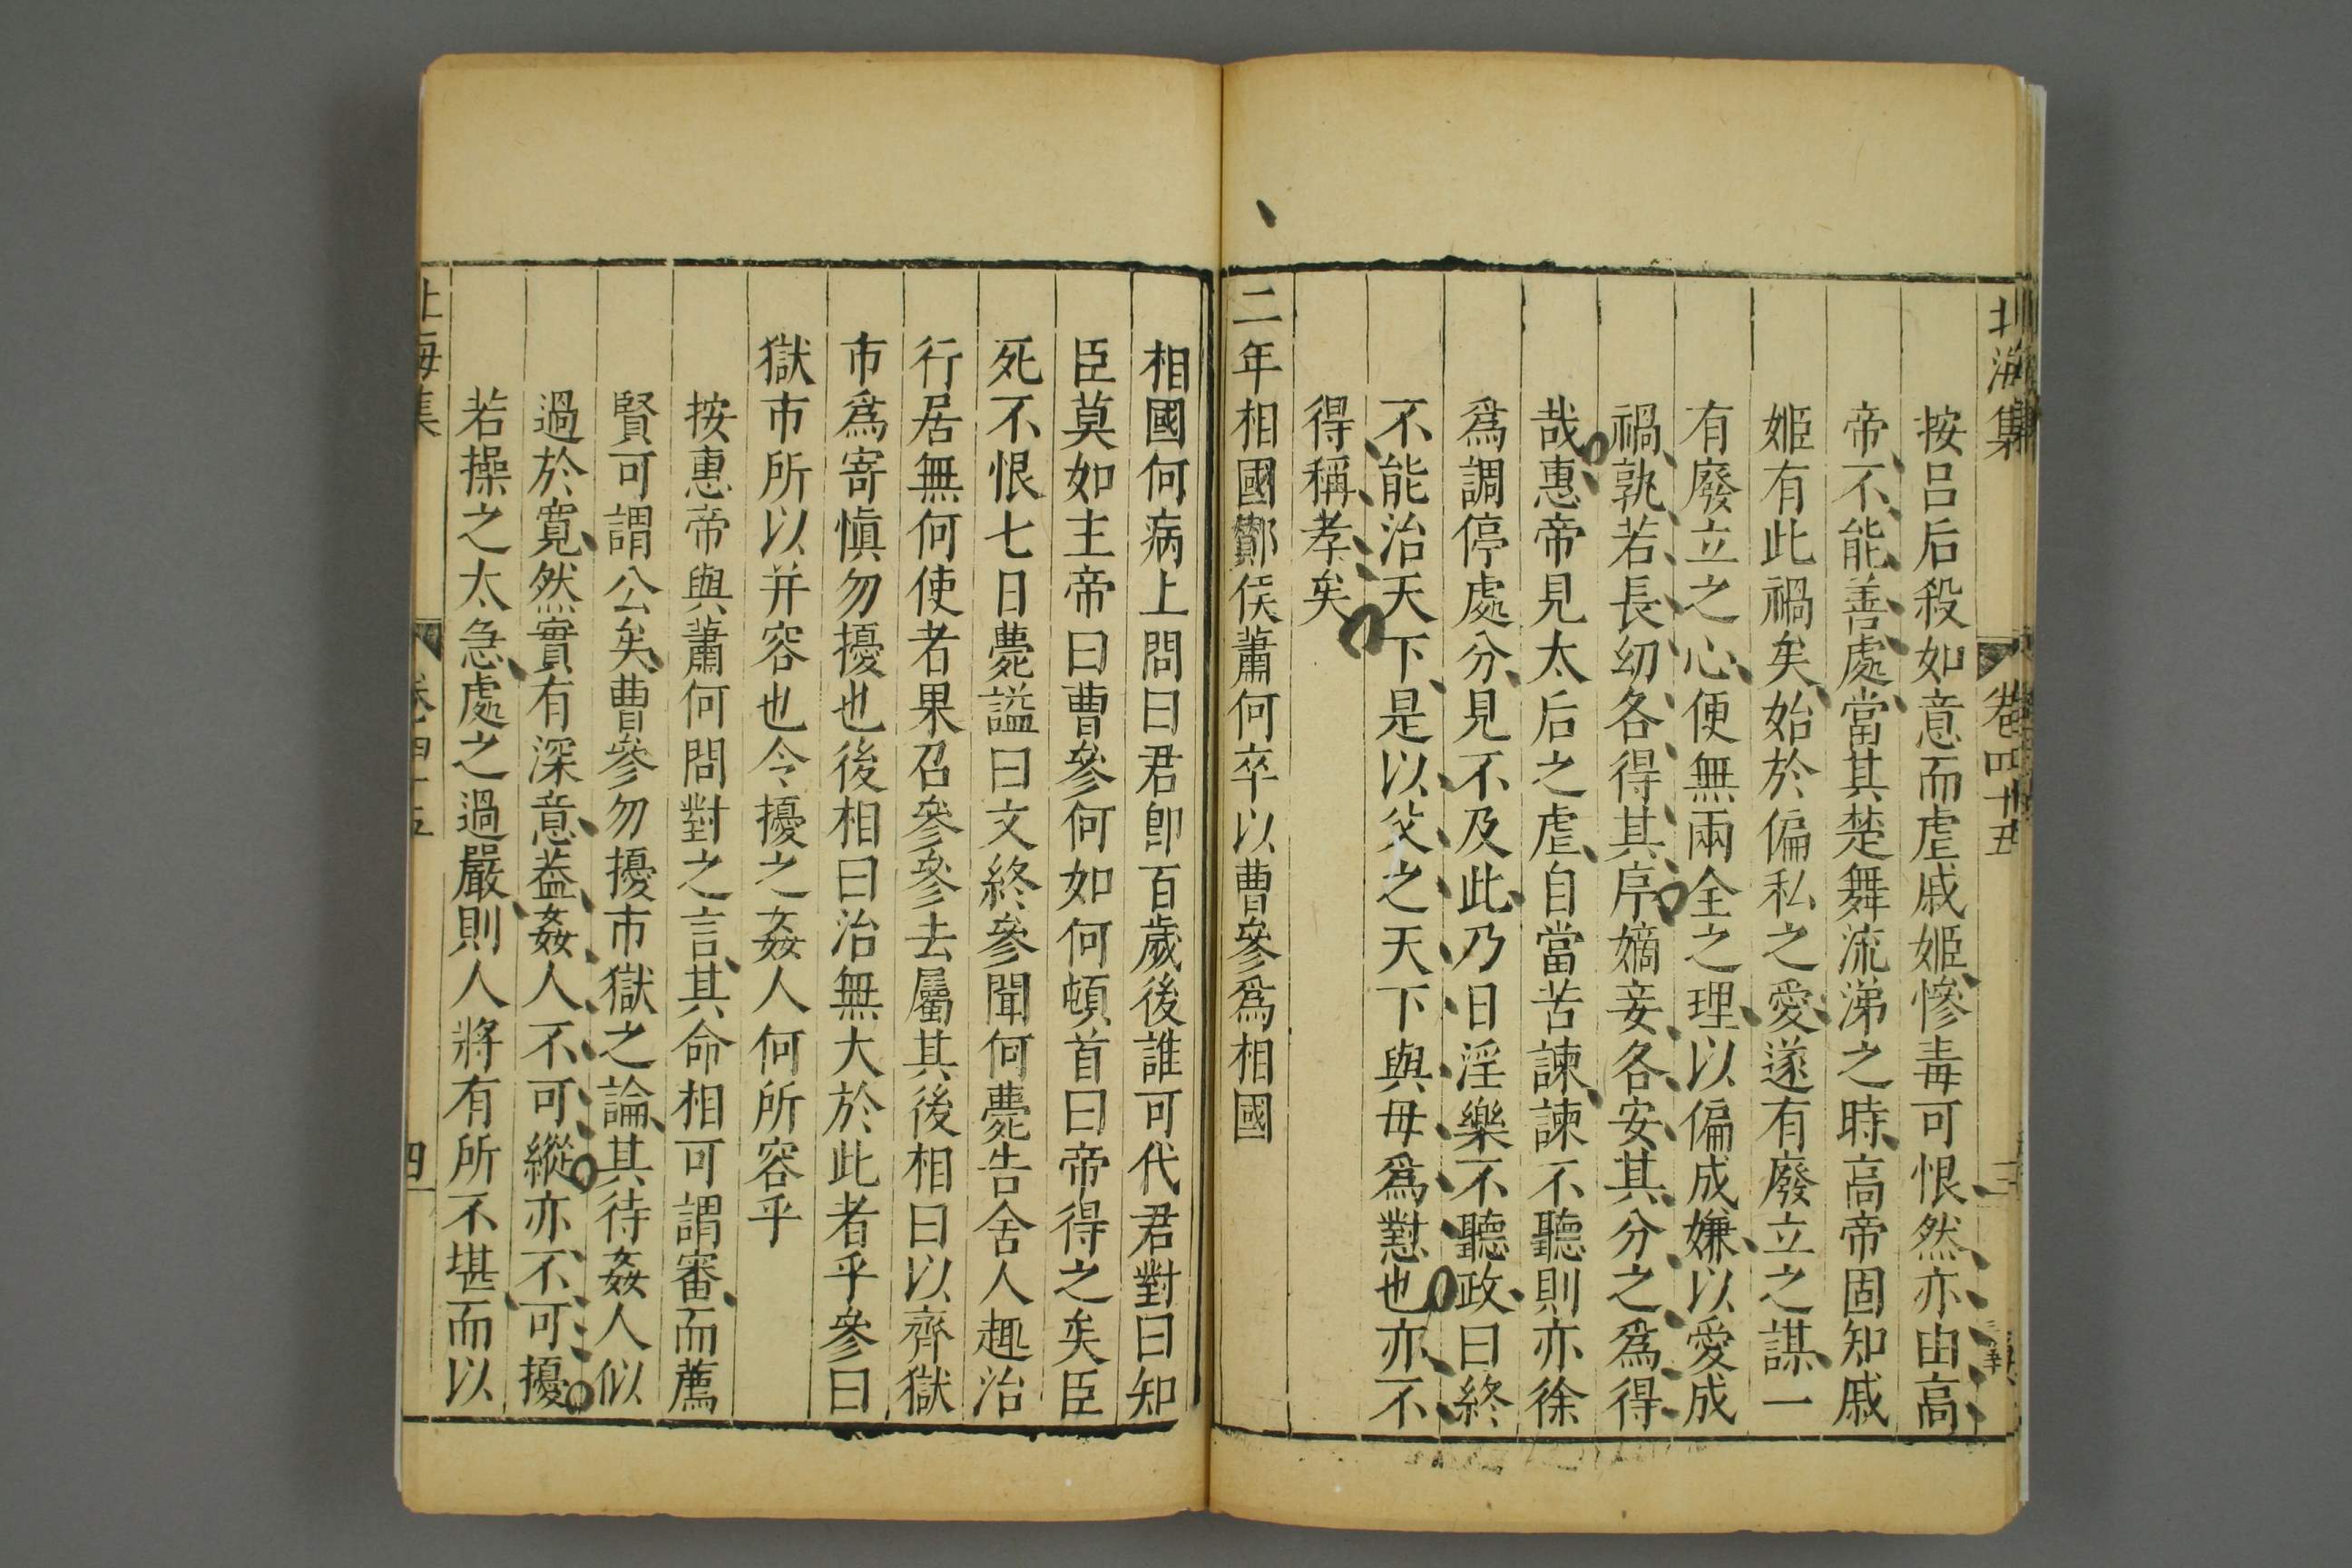 北海集 卷四十五 三
按呂后殺如意而虐戚姬慘毒可恨然亦由高
帝不能善處當其楚舞流涕之時高帝固知戚
姬有此禍矣始於偏私之愛遂有廢立之謀一
有廢立之心便無兩全之理以偏成嫌以愛成
禍孰若長幼各得其序嫡妾各安其分之爲得
哉惠帝見太后之虐自當苦諫諫不聽則亦徐
爲調停處分見不及此乃日淫樂不聽政曰終
不能治天下是以父之天下與毋爲懟也亦不
得稱孝矣
二年相國酇侯蕭何卒以曹參爲相國
相國何病上問曰君卽百歲後誰可代君對曰知
臣莫如主帝曰曹參何如何頓首曰帝得之矣臣
死不恨七日薨謚曰文終參聞何薨告舍人趣治
行居無何使者果召參參去屬其後相曰以齊獄
市爲寄愼勿擾也後相曰治無大於此者乎參曰
獄市所以并容也今擾之姦人何所容乎
按惠帝與蕭何問對之言其命相可謂審而薦
賢可謂公矣曹參勿擾市獄之論其待姦人似
過於寬然實有深意葢姦人不可縱亦不可擾
若操之太急處之過嚴則人將有所不堪而以
北海集 卷四十五 四